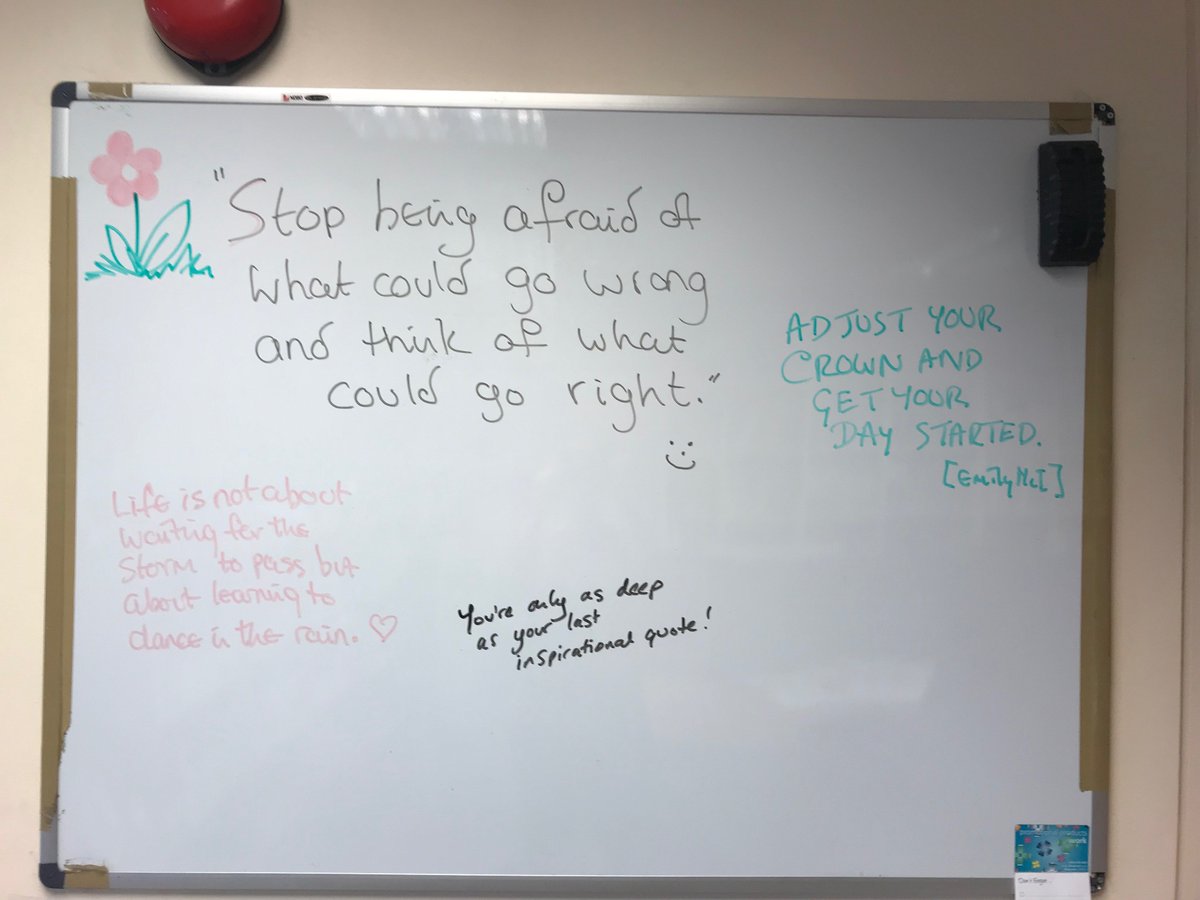 "Stop being afraid of
what could go wrong
and think of what
could go right."
ADJUST YOUR
CROWN AND
GET YOUR
DAY STARTED.
[Emily McI]
Life is not about
waiting for the
storm to pass but
about learning to
dance in the rain.
You're only as deep
as your last
inspirational quote!
work
Don't Forget